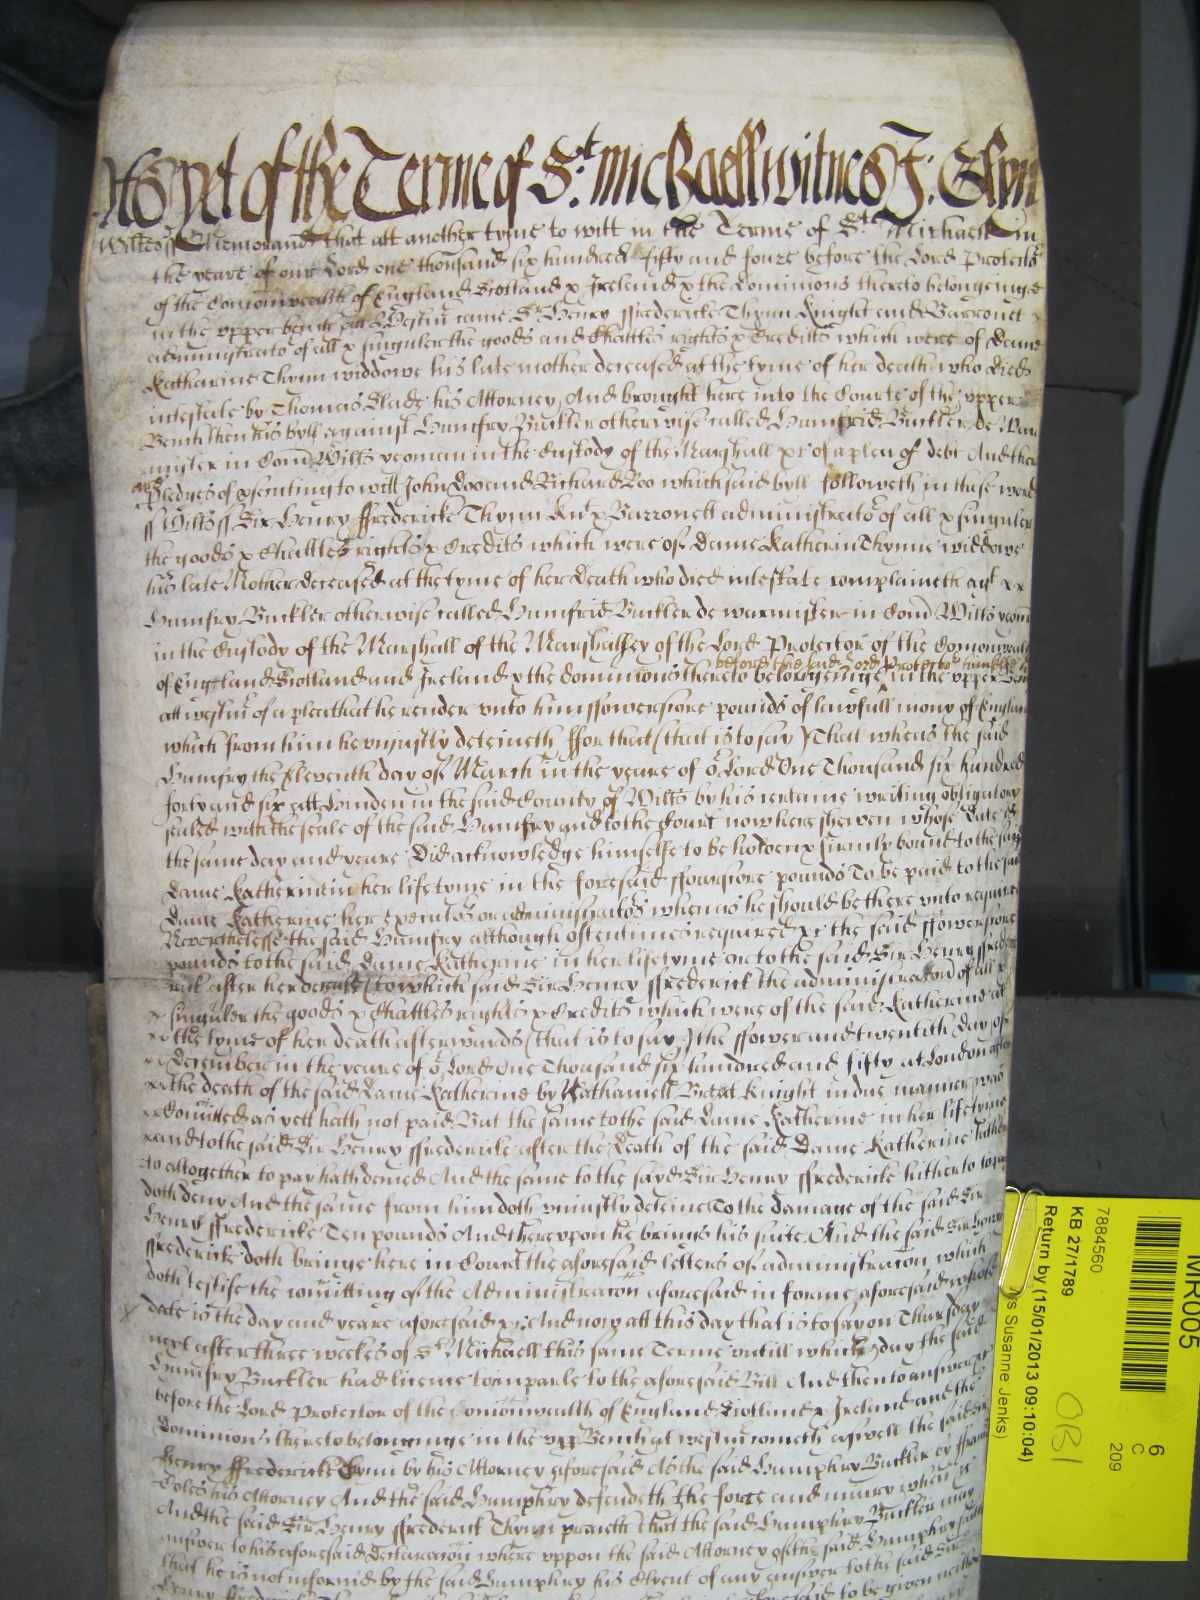 As yet of the Terme of St. Michaell witnes J: Glyn
Wiltes ss Memorand that att another tyme to witt in the Terme of St Michaell in
the yeare of our Lord one thousand six hundred fifty and foure before the Lord Protector
of the Comonwealth of England Scotland & Ireland & the Dominions thereto belongeinge
in the upper bench att Westm came Sr Henry ffredericke Thynn Knight and Barronet
administrator of all & singuler the goods and Chattles rights & Creditts which were of Dame
Katharine Thynn widdowe his late mother deceased at the tyme of her death who died
intestate by Thomas Slade his Attorney And brought here into the Courte of the upper
Bench then his byll against Humfry Buckler otherwise called Humfrid Buckler de War
mister in Com Wilts yeoman in the Custody of the Marshall &c of a plea of debt And there
are pledges of &secuting to witt John Doo and Richard Roo which said byll followeth in these words
ss Wilts ss Sir Henry ffredericke Thynn Knt & Barronett administrator of all & singuler
the goods & Chattles rights & Credits which were of Dame Katherin Thynne widdowe
his late Mother deceased at the tyme of her Death who died intestate complaineth agt
Humfry Buckler otherwise called Humfrid Buckler de warmister in Com Wilts yeom
in the Custody of the Marshall of the Marshalsey of the Lord Protector of the Comonwealth
before the said Lord Protector himselfe
of England Scotland and Ireland & the dominions thereto belongeinge in the upper Bench
att westm of a plea that he render unto him ffowerscore pounds of lawfull mony of England
which from him he uniustly deteineth ffor that (that is to say) That wheras the said
Humfry the Eleventh day of March in the yeare of or Lord One Thousand six hundred
forty and six att in the said County of Wilts by his certaine writing obligatory
sealed with the seale of the said Humfry and to the Court now here shewen whose date is
the same day and yeare Did acknowledge himselfe to be holden & firmly bound to the said
Dame Katherine in her life tyme in the foresaid ffowrscore pounds To be paid to the said
Dame Katherine her executors or administrators when as he should be there unto required
Neverthelesse the said Humfry although oftentimes required &c the said ffowerscore
pounds to the said Dame Katherine in her life tyme or to the said Sir Henry ffrede
rick after her decease (to which said Sir Henry ffrederick the administracon of all &
singuler the goods & Chattles rights & Credits which were of the said Katherine at
the tyme of her death afterwards (that is to say) the ffower and twentith day of
December in the yeare of or Lord One Thousand six hundred and fifty at London after
the death of the said Dame Katherine by Nathaniell Brent Knight in due manner was
Comitted as yett hath not paid But the same to the said Dame Katherine in her life tyme
and to the said Sir Henry ffredericke after the Death of the said Dame Katherine hither
to altogether to pay hath denied And the same to the sayd Sir Henry ffredericke hitherto to pay
doth deny And the same from him doth uniustly deteine To the damage of the said Sir
Henry ffredericke Ten pounds And thereupon he brings his suite. And the said Sir Henry
ffredericke doth bringe here in Court the aforesaid letters of administracon which
doth testifie the comitting of the Administracon aforesaid in forme aforesaid whose
date is the day and yeare aforesaid &c: And now att this day that is to say on Thursday
next after three weekes of St Michaell this same Terme untill which day the said
Humfry Buckler had licence to imparle to the aforesaid Bill And then to answer &c
before the Lord Protector of the Comonwealth of England Scotland & Ireland and the
Dominions thereto belonginge in the upp Bench at westm cometh aswell the said Sir
Henry ffredericke Thynn by his Attorney aforesaid As the said Humphry Buckler by ffrancis
Coles his Attorney And the said Humphry defendeth the force and iniury when &c
And the said Sir Henry ffrederick Thynn prayeth that the said Humphry Buckler may
answer to his aforesaid Declaracon where uppon the said Attorney of the said Humphry saith
that he is not informed by the said Humphry his Clyent of any answer to the said Sir
Henry ffrederick said to be given
MR005
6
C
209
7884560
KB 27/1789
Return by (15/01/2013 09:10:04)
Susanne Jenks)